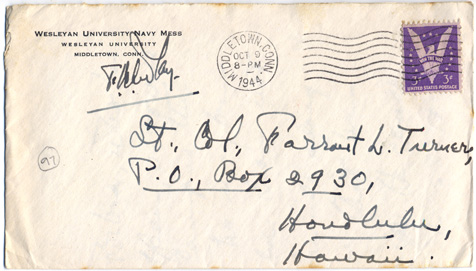 WESLEYAN UNIVERSITY NAVY MESS
WESLEYAN UNIVERSITY
MIDDLETOWN, CONN.
MIDDLETOWN, CONN.
OCT 9
8-PM
1944
WIN THE WAR
UNITED STATES POSTAGE
3¢
97
Lt. Col. Farrant L. Turner,
P.O. Box 2930,
Honolulu,
Hawaii.